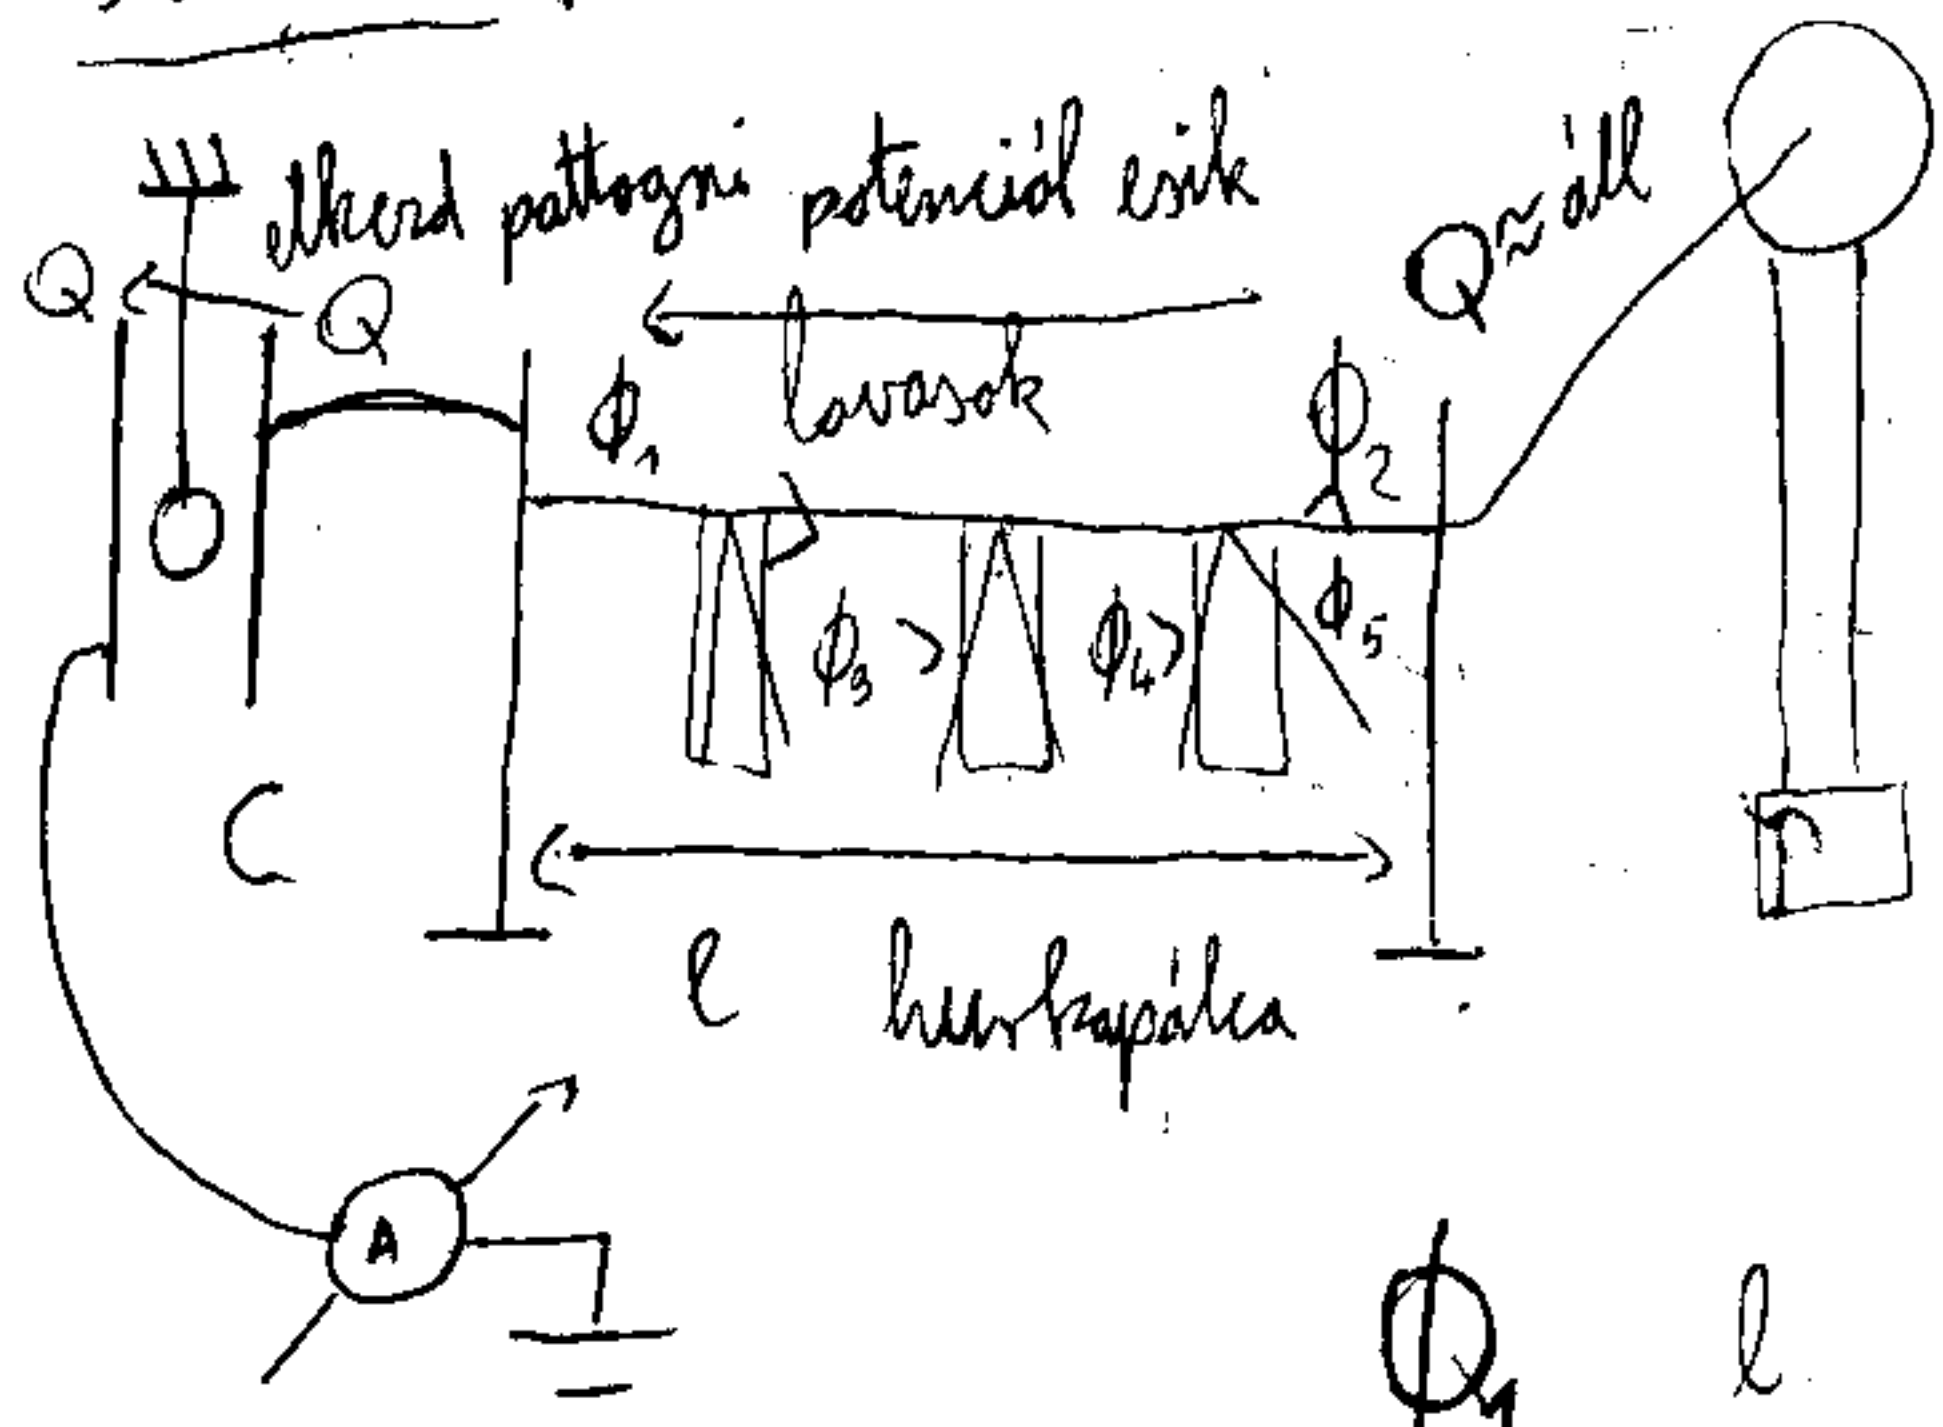 elkezd pattogni potenciál esik
Q Q Q ≈ áll
ϕ₁ lovasok ϕ₂
ϕ₃ > ϕ₄ > ϕ₅
C
l hurkapálca
A
l